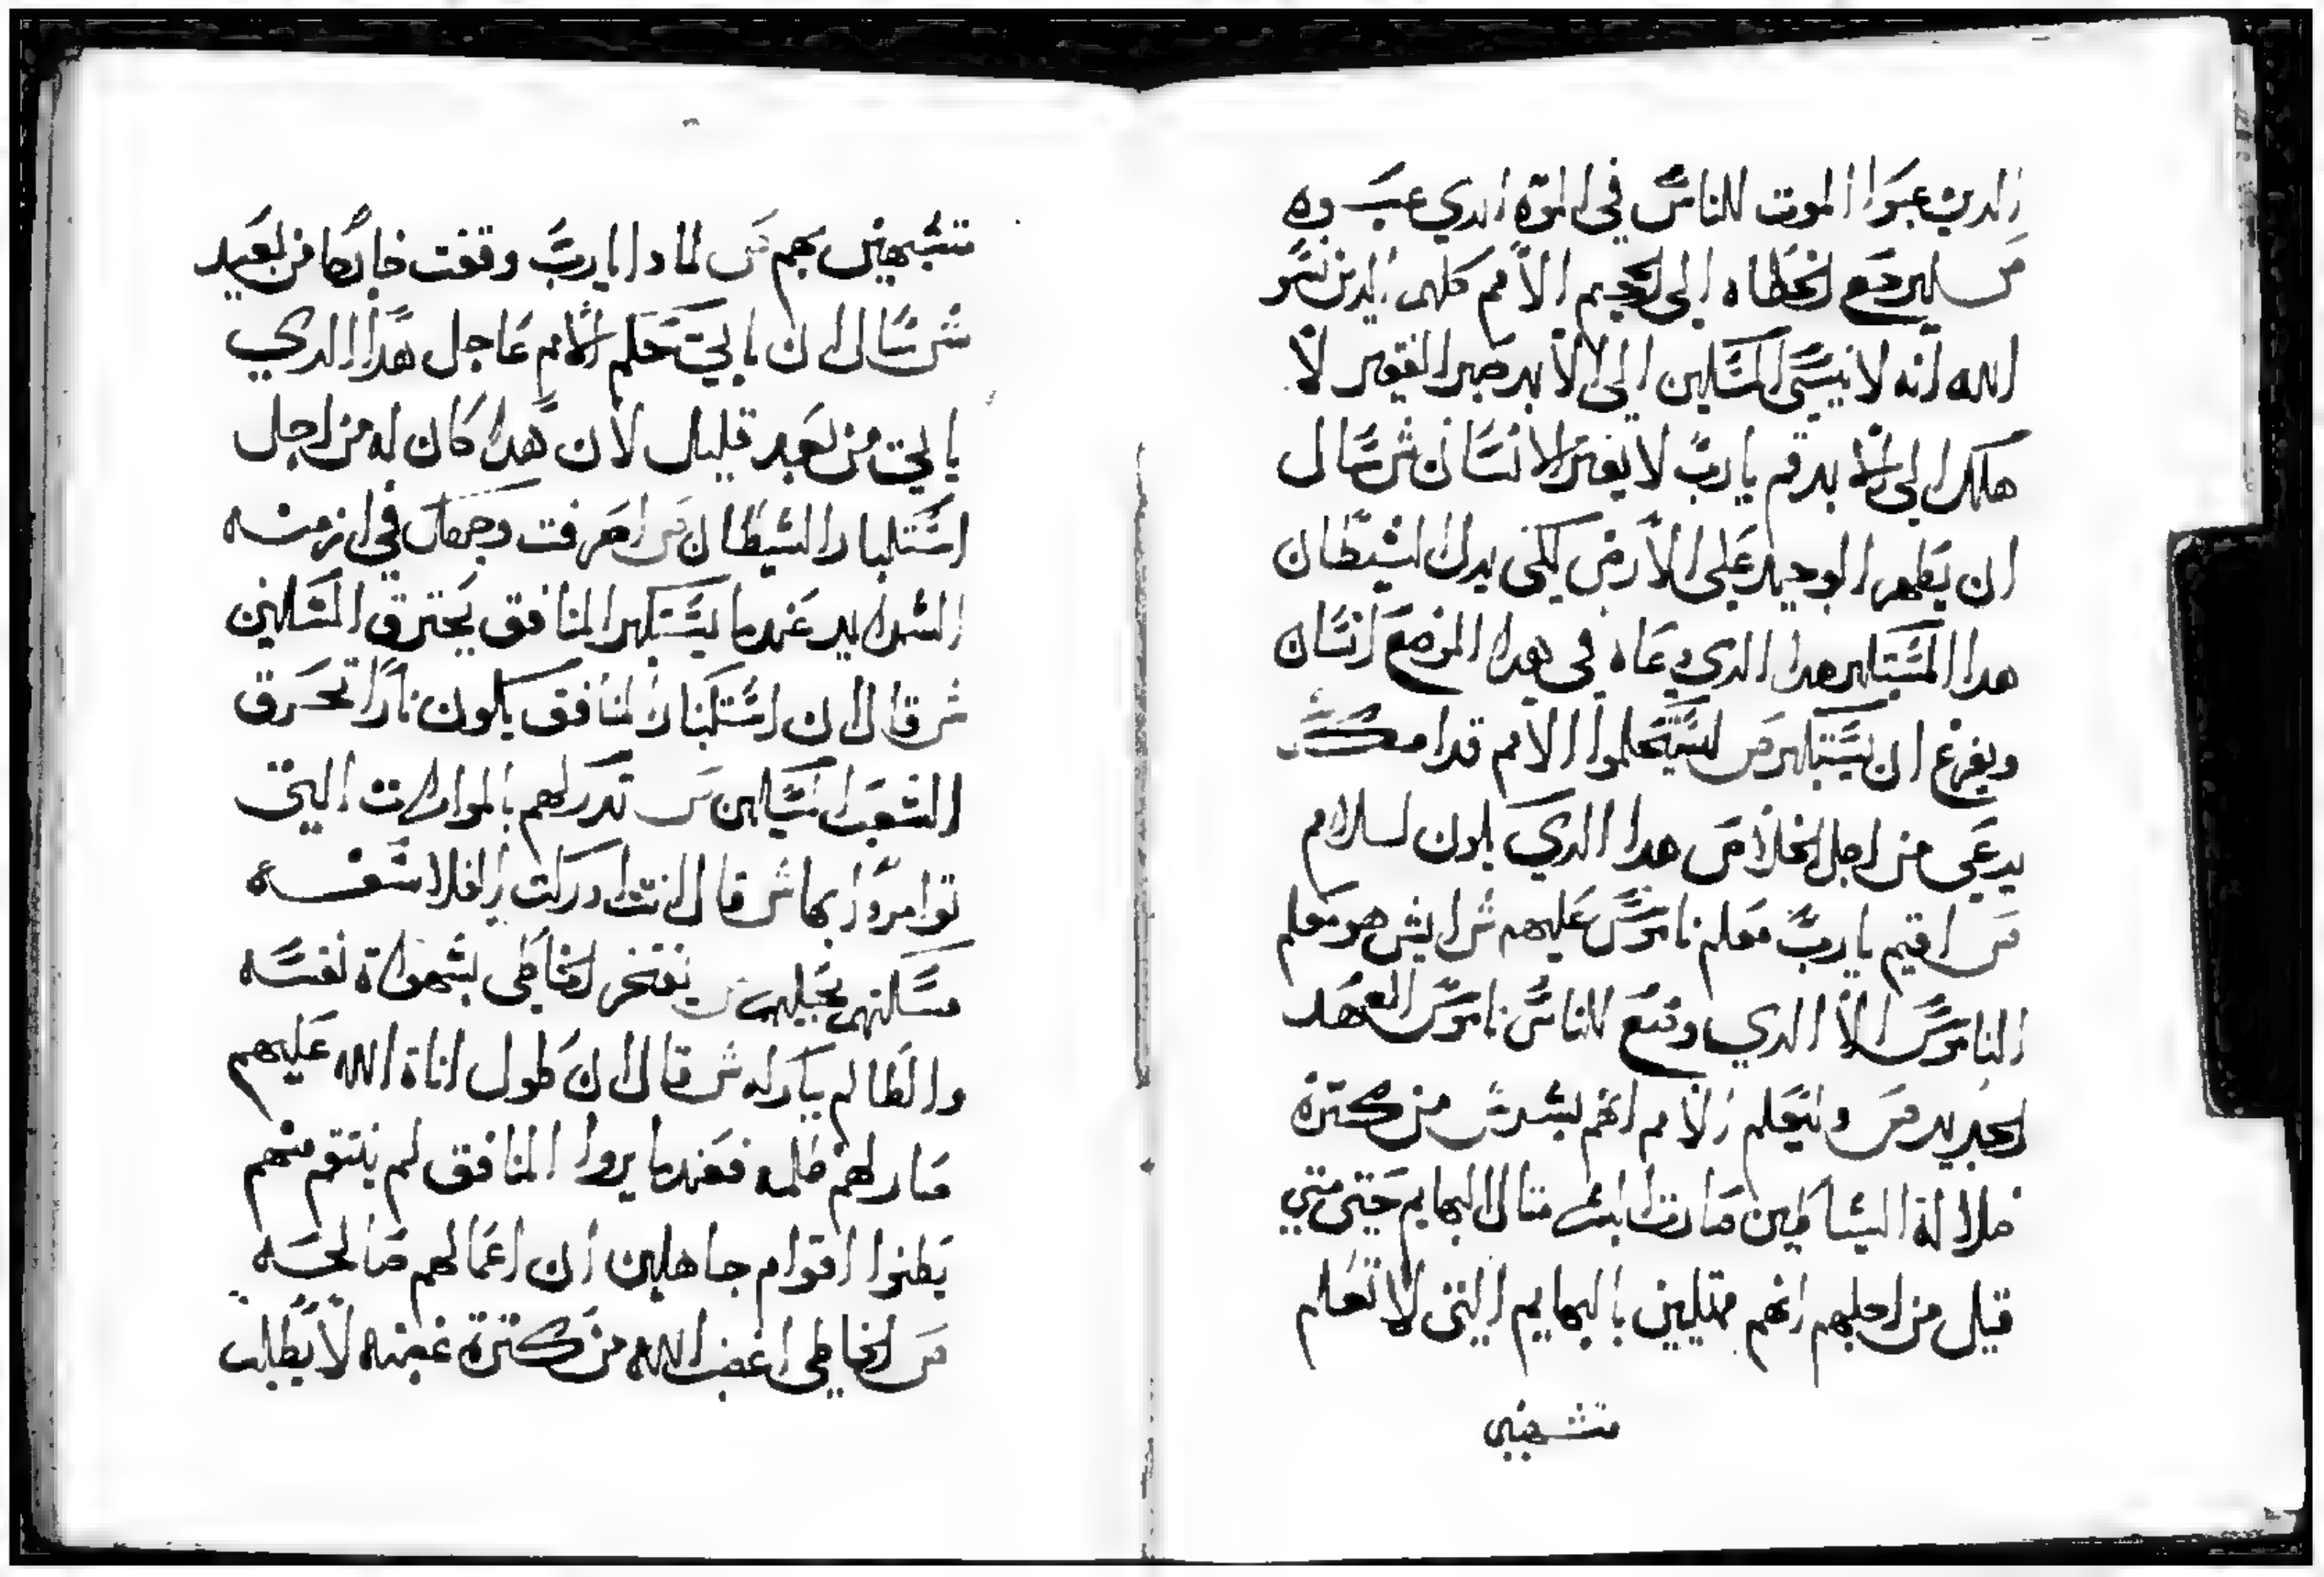 الدين عبروا الموت للناس في الموة الدي عبروه
مر ليرجع الخطاه الى الجحيم الأمم كلهم الدين نسو
الله انه لا ينسى المساكين الى الأبد صبر الفقير لا
هلك الى الأبد قم يارب لا يعتز الانسان ش سال
ان يظهر الوحيد على الأرض لكي يدل الشيطان
هدا المستكبر هدا الدي دعاه في هدا الموضع انسان
ويفزع ان يستكبر مر ليتحكموا الامم قدامك ش
يدعى من اجل الخلاص هدا الدي يكون لسلام
مر اقيم يارب معلم ناموس عليهم ش ايش هو معلم
الناموس الا الدي وضع للناس ناموس العهد
الجديد مر وليعلم الأمم انهم بشر ش من كترة
ضلالة الشياطين صارت البشر متال البهايم حتى متي
قيل من اجلهم انهم متلين بالبهايم التى لا تعلم
متشبهين
متشبهين بهم مر لمادا يارب وقفت خارجا من بعيد
ش سال ان ياتي حكم الأمم عاجل هدا الدي
ياتي من بعد قليل لان هدا كان له من اجل
استكبار الشيطان مر اصرفت وجهك في ازمنه
الشدايد عندما يستكبر المنافق يحترق المساكين
ش قال ان استكبار المنافق يكون نارا تحرق
الشعب المساكين مر تدركهم بالموامرات التى
توامروا بها ش قال انت ادركت بافلا شفه
مسكنهم بجليهم مر يفتخر الخاطى بشهواة نفسه
والظالم يبارك ش قال ان طول اناة الله عليهم
صار لهم ظلمه فعندما يروا المنافق لم ينتقم منهم
يظنوا اقوام جاهلين ان اعمالهم صالحه
مر الخاطى اغضب الله من كترة غضبه لا يطلب